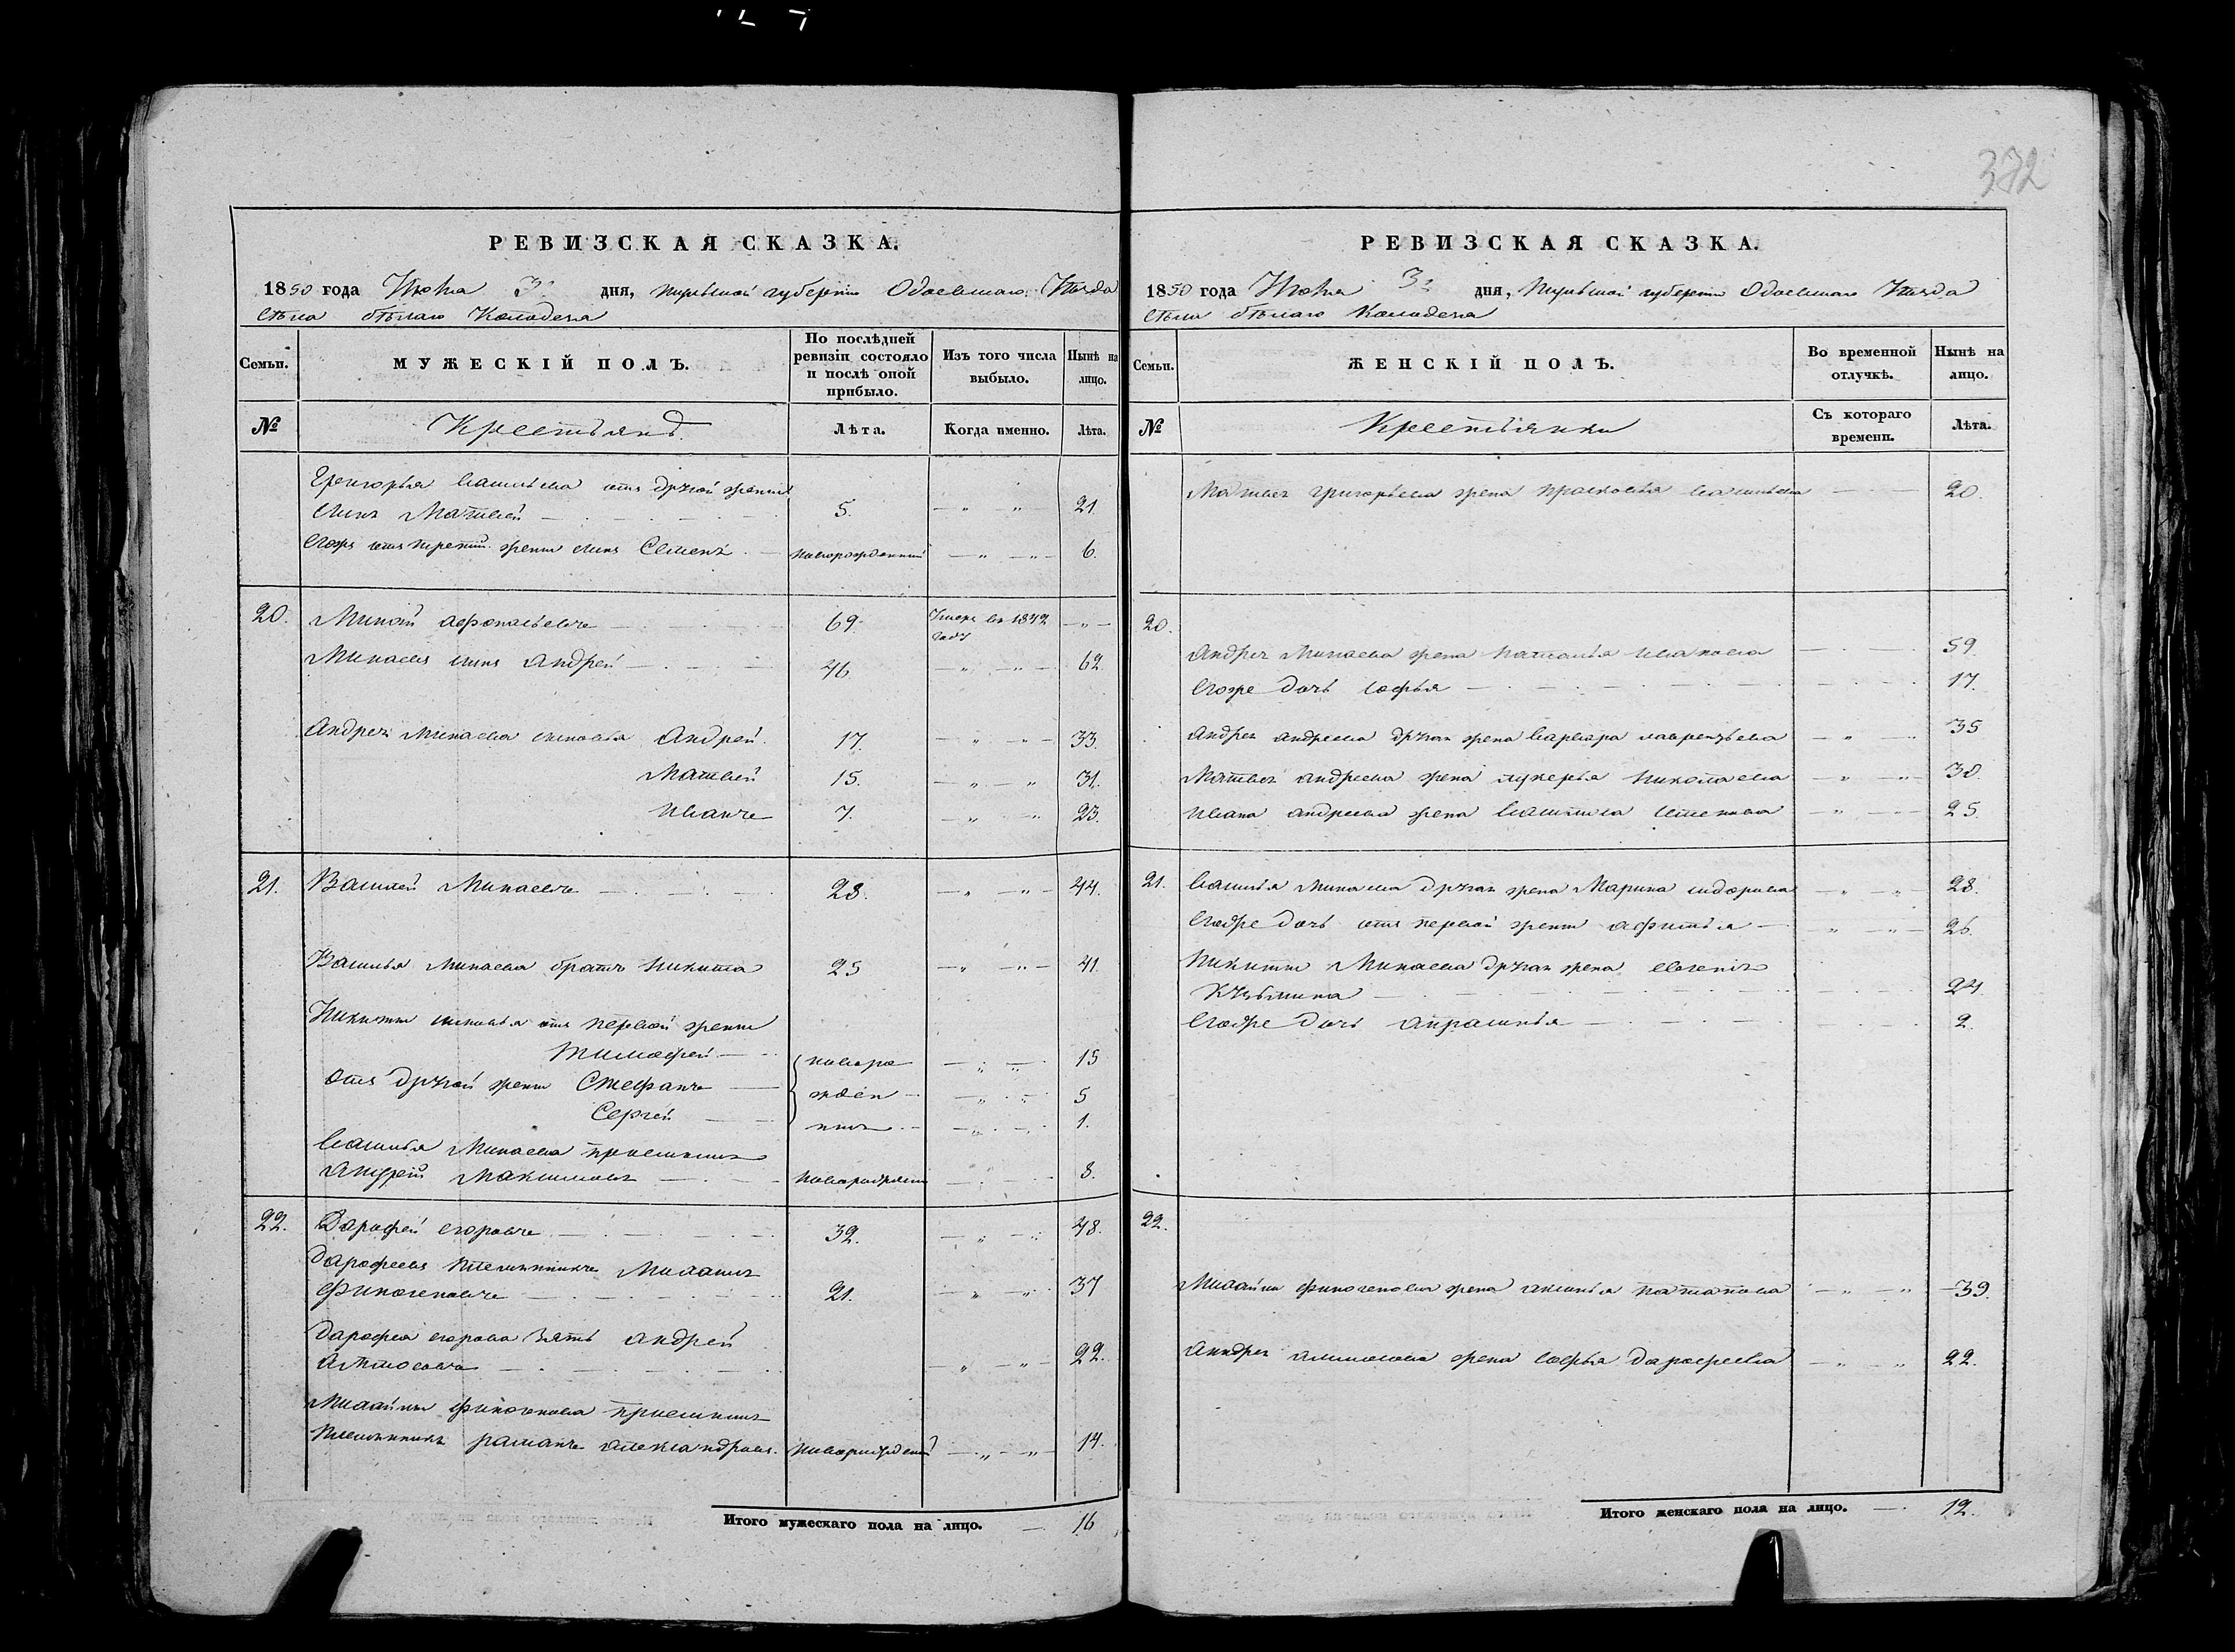 372
РЕВИЗСКАЯ СКАЗКА.
1850 года Июня 3 дня, Тульской губернии Одоевскаго Уезда
Села белаго Колодезя
Семьи.
МУЖЕСКІЙ ПОЛЪ.
По послѣдней ревизіи состояло и послѣ оной прибыло.
Изъ того числа выбыло.
Нынѣ на лицо.
№
Крестьянъ
Лѣта.
Когда именно.
Лѣта.
Григорья васильева отъ другой жены
сынъ Матвей 5. 21.
Егожъ отъ третей жены сынъ Семенъ новорожденный 6.
20. Миней афонасьевъ 69. Умеръ въ 1842 году
Минаевъ сынъ Андрей 46. 62.
Андрея Минаева сыновья Андрей 17. 33.
Матвей 15. 31.
Иванъ 7. 23.
21. Василей Минаевъ 28. 44.
Василья Минаева братъ Никита 25 41.
Никиты сыновья отъ первой жены
Тимофей новоро 15
отъ другой жены Стефанъ жден 5
Сергей ные 1.
Василья Минаева приемышъ
Андрей Максимовъ новорожден 8.
22. Дорофей егоровъ 32. 48.
Дорофеевъ племянникъ
финогеновъ 21. 37
Дорофея егорова зять андрей
22.
финогенова приемышъ
племянникъ романъ александровъ. новорожденный 14.
Итого мужескаго пола на лицо. 16
РЕВИЗСКАЯ СКАЗКА.
1850 года Июня 3 дня, Тульской губернии Одоевскаго Уезда
Села белаго Колодезя
Семьи.
ЖЕНСКІЙ ПОЛЪ.
Во временной отлучкѣ.
Нынѣ на лицо.
№
Крестьянки
Съ котораго времени.
Лѣта.
Матвея григорьева жена прасковья васильева 20.
20.
Андрея Минаева жена наталья иванова 59.
Егоже дочь софья 17.
Андрея андреева другая жена варвара лаврентьева 35
Матвея андреева жена лукерья николаева 30.
Ивана андреева жена 25.
21. Василья Минаева другая жена Марина сидорова 28.
Егоже дочь отъ первой жены афимья 26.
Никиты Минаева другая жена евгения
Кузьмина 24.
Егоже дочь апрасинья 2.
22.
финогенова жена аксинья потапова 39.
Андрея жена софья дарофеева 22.
Итого женскаго пола на лицо. 12.